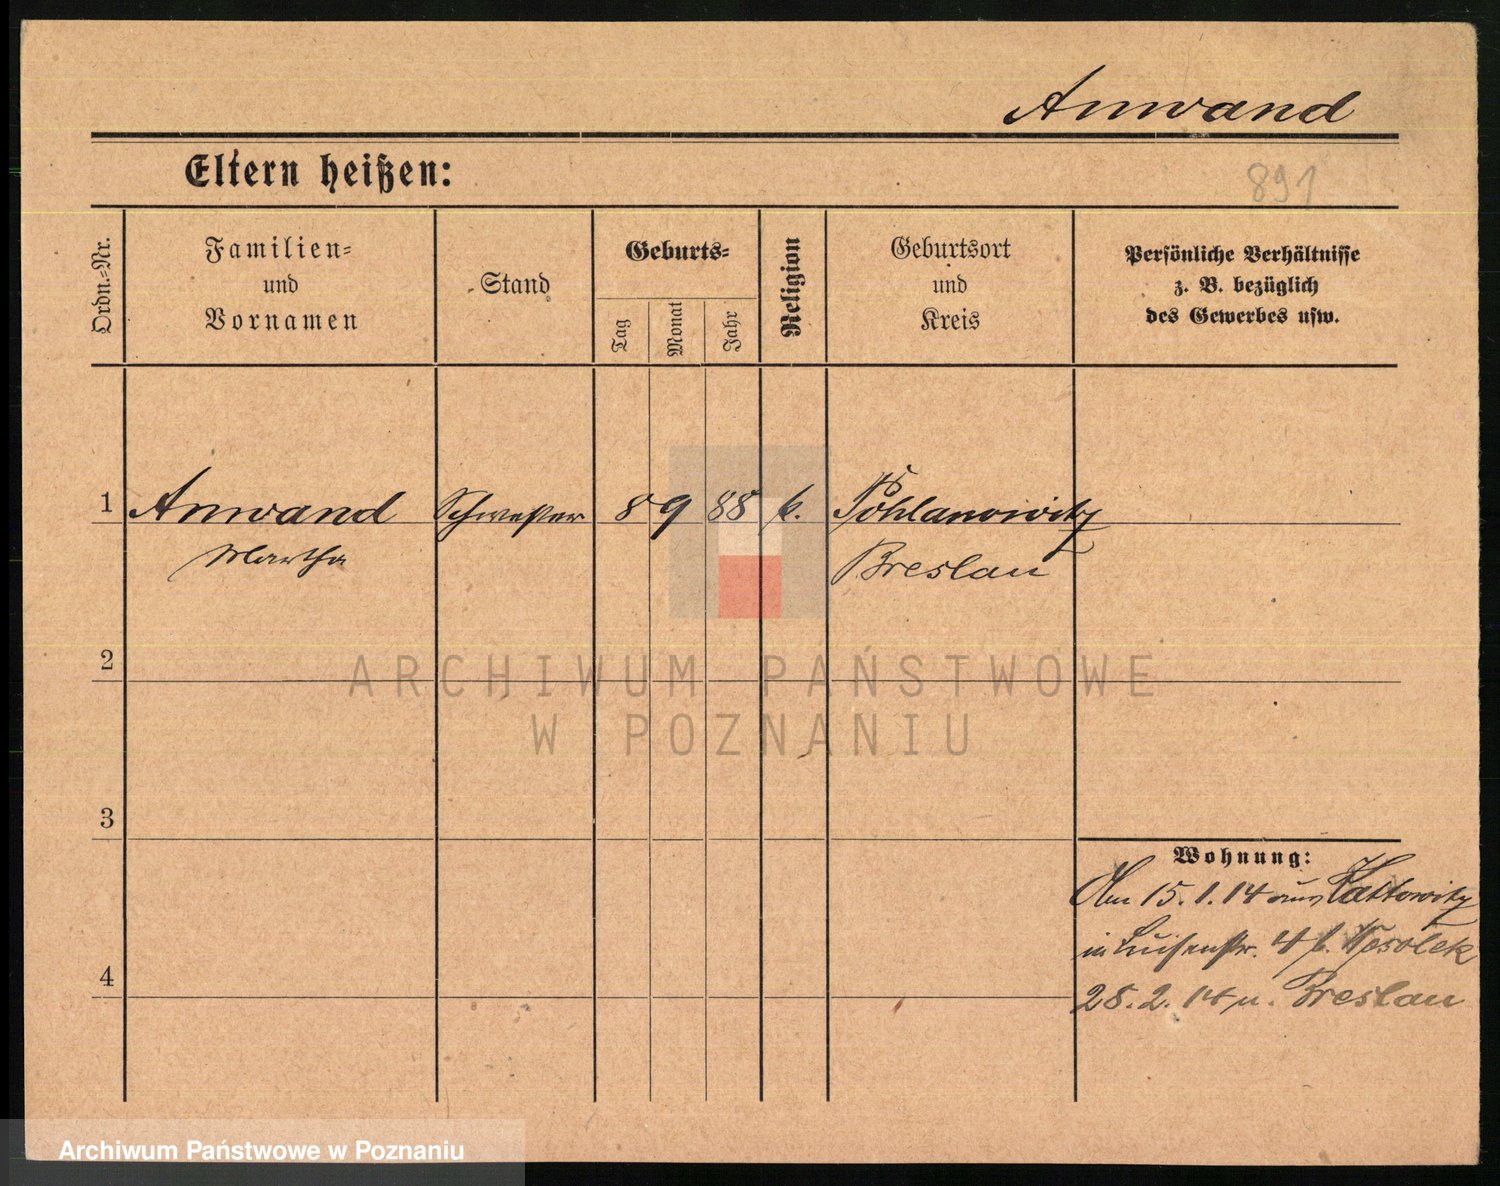 Anwand
Eltern heißen:
891
Ordn.-Nr.
Familien-
und
Vornamen
Stand
Geburts-
Tag
Monat
Jahr
Religion
Geburtsort
und
Kreis
Persönliche Verhältnisse
z. B. bezüglich
des Gewerbes usw.
1 Anwand Schwester 8 9 88 k. Pohlanowitz
Martha Breslau
2
ARCHIWUM PAŃSTWOWE
W POZNANIU
3
Wohnung:
Am 15.1.14 aus Kattowitz
in Luisenstr. 4 b. Wesolek
4
28.2.14 n. Breslau
Archiwum Państwowe w Poznaniu